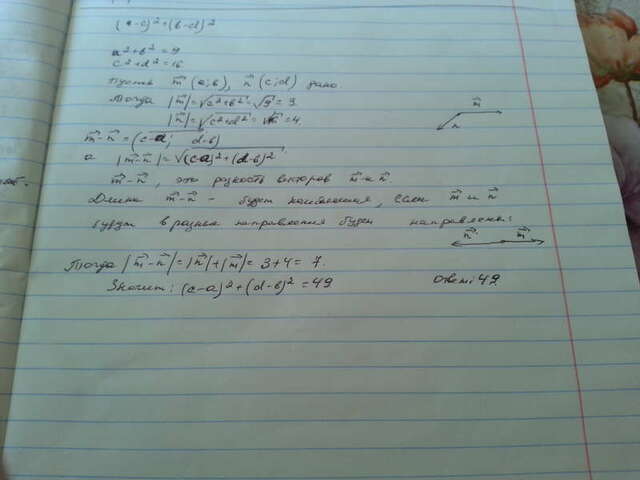 (a-c)²+(b-d)²
a²+b²=9
c²+d²=16
Пусть m⃗ (a;b), n⃗ (c;d) дано
Тогда |m⃗|=√c²+b²=√9=3
m⃗
|n⃗|=√c²+d²=√16=4.
n
m⃗-n⃗=(c-a; d-b)
а |m⃗-n⃗|=√(c-a)²+(d-b)²
m⃗-n⃗, это разность векторов m⃗ и n⃗.
Длина m⃗-n⃗ - будет, если m⃗ и n⃗
будут в разные направления будут направлены:
n⃗ m⃗
Тогда |m⃗-n⃗|=|n⃗|+|m⃗|=3+4=7.
Значит: (c-a)²+(d-b)²=49 Ответ: 49